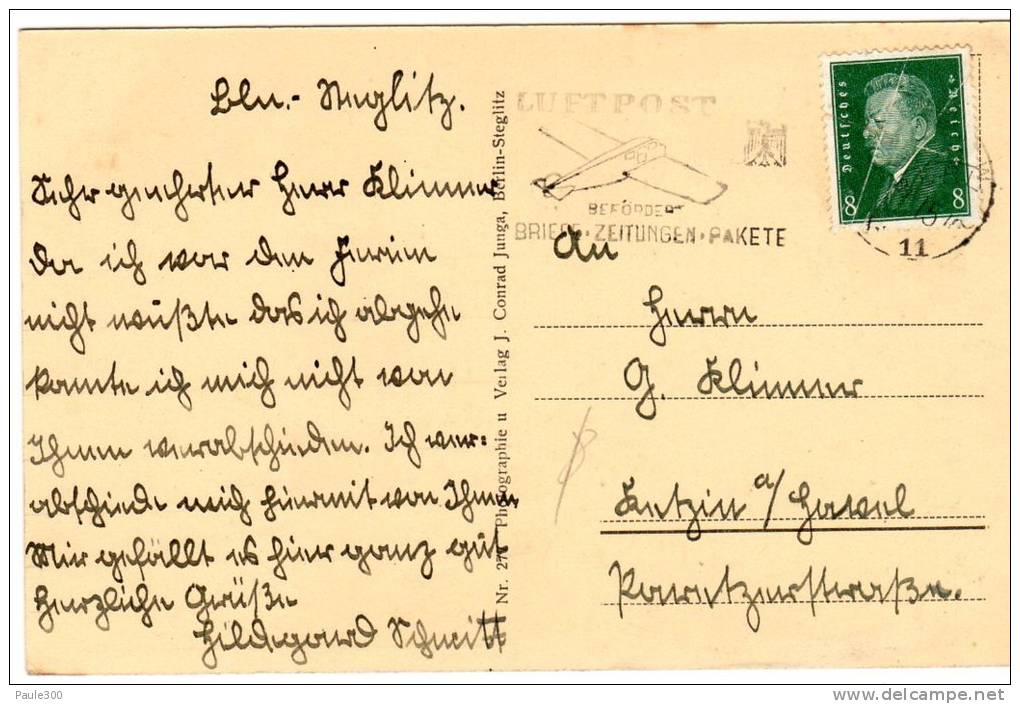 Bln.- Steglitz.
Sehr geehrter Herr Klimmer
da ich vor den Ferien
nicht wußte das ich abgehe
konnte ich mich nicht von
Ihnen verabschieden. Ich ver=
abschiede mich hiermit von Ihnen
Mir gefällt es hier ganz gut
Herzliche Grüße
Hildegard Schmitt
Nr. 27 Photographie u Verlag J. Conrad Junga, Berlin-Steglitz
LUFTPOST
BEFÖRDERT
BRIEFE·ZEITUNGEN·PAKETE
Deutsches Reich
8 8
11
An
Herrn
G. Klimmer
Ketzin a/Havel
Paretzerstraße.
Paule300
delcampe.net